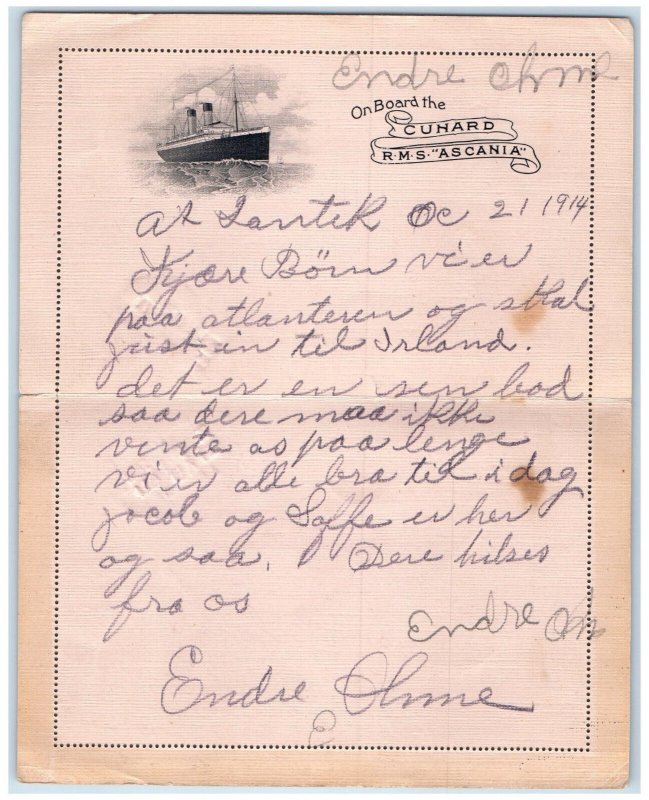 Endre Ohme
On Board the
CUNARD
R·M·S· "ASCANIA"
At Lantik Oc 21 1914
Kjære Børn vi er
paa atlanteren og skal
just in til Irland.
det er en sen bod
saa dere maa ikke
vente os paa lenge
vi er alle bra til i dag
jacob og Soffe er her
og saa. Dere hilses
fra os
Endre Oh
Endre Ohme
E